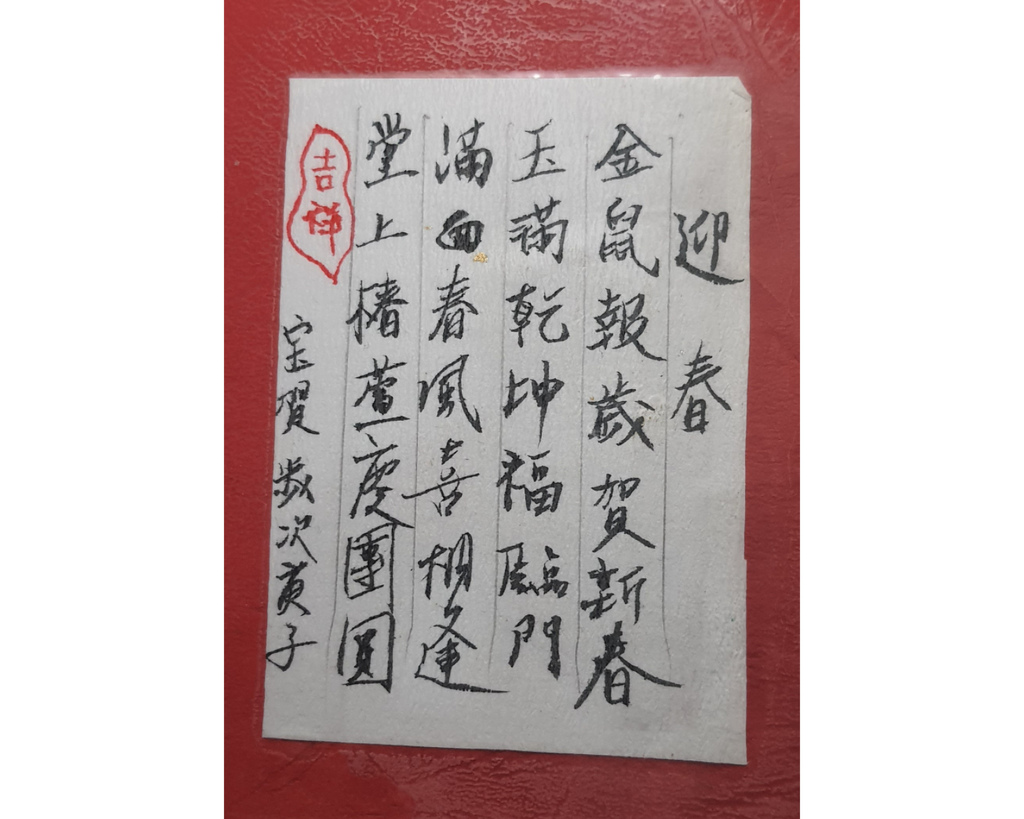 迎春
金鼠報歲賀新春
玉满乾坤福臨門
滿面春風喜相逢
堂上椿萱慶團圓
吉祥
宝賀 歲次庚子